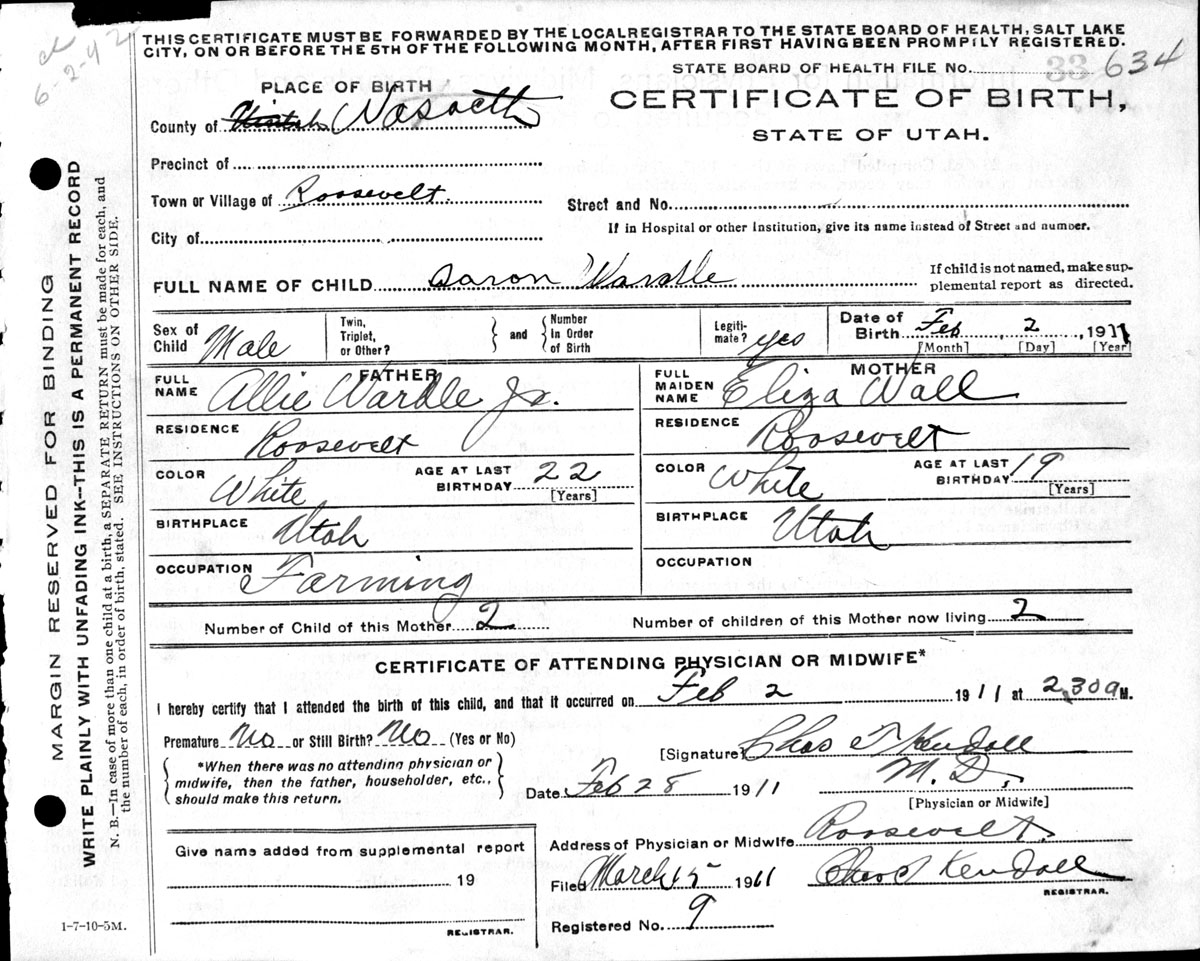 6-2-42
THIS CERTIFICATE MUST BE FORWARDED BY THE LOCALREGISTRAR TO THE STATE BOARD OF HEALTH, SALT LAKE
CITY, ON OR BEFORE THE 5TH OF THE FOLLOWING MONTH, AFTER FIRST HAVING BEEN PROMPTLY REGISTERED.
STATE BOARD OF HEALTH FILE No. 33 634
PLACE OF BIRTH
CERTIFICATE OF BIRTH,
STATE OF UTAH.
County of Wasatch
Precinct of
Town or Village of Roosevelt.
Street and No.
City of
If in Hospital or other Institution, give its name instead of Street and number.
FULL NAME OF CHILD Aaron Wardle
If child is not named, make sup-
plemental report as directed.
Sex of Child Male
Twin, Triplet, or Other? } and { Number In Order of Birth
Legiti-mate? yes
Date of Birth Feb, 2, 1911
[Month] [Day] [Year]
FATHER
FULL NAME Allie Wardle Jr.
RESIDENCE Roosevelt
COLOR White
AGE AT LAST BIRTHDAY 22
[Years]
BIRTHPLACE Utah
OCCUPATION Farming
MOTHER
FULL MAIDEN NAME Eliza Wall
RESIDENCE Roosevelt
COLOR White
AGE AT LAST BIRTHDAY 19
[Years]
BIRTHPLACE Utah
OCCUPATION
Number of Child of this Mother 2
Number of children of this Mother now living 2
CERTIFICATE OF ATTENDING PHYSICIAN OR MIDWIFE*
I hereby certify that I attended the birth of this child, and that it occurred on Feb 2 1911 at 2,30 a M.
Premature No or Still Birth? No (Yes or No)
[Signature] Chas T Kendall
M. D,
*When there was no attending physician or
midwife, then the father, householder, etc.,
should make this return.
Date Feb 28 1911
[Physician or Midwife]
Give name added from supplemental report
19
REGISTRAR.
Address of Physician or Midwife Roosevelt.
Filed March 15 1911 Chas T Kendall
REGISTRAR.
Registered No. 9
1-7-10-5M.
MARGIN RESERVED FOR BINDING
WRITE PLAINLY WITH UNFADING INK--THIS IS A PERMANENT RECORD
N. B.—In case of more than one child at a birth, a SEPARATE RETURN must be made for each, and
the number of each, in order of birth, stated. SEE INSTRUCTIONS ON OTHER SIDE.